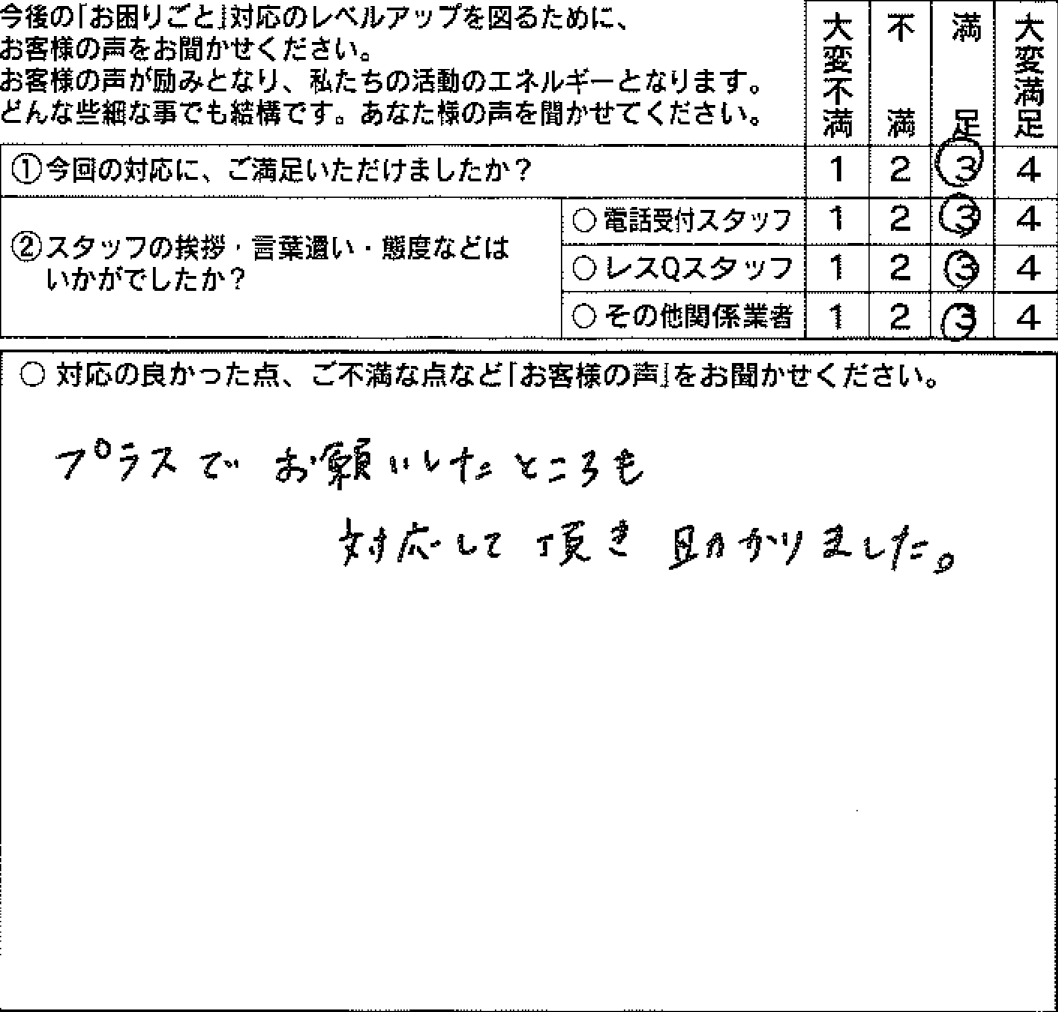 今後の「お困りごと」対応のレベルアップを図るために、
お客様の声をお聞かせください。
お客様の声が励みとなり、私たちの活動のエネルギーとなります。
どんな些細な事でも結構です。あなた様の声を聞かせてください。
大変不満 不満 満足 大変満足
①今回の対応に、ご満足いただけましたか？ 1 2 3 4
②スタッフの挨拶・言葉遣い・態度などは
いかがでしたか？
○電話受付スタッフ 1 2 3 4
○レスQスタッフ 1 2 3 4
○その他関係業者 1 2 3 4
○ 対応の良かった点、ご不満な点など「お客様の声」をお聞かせください。
プラスで お願いしたところも
対応して頂き 助かりました。